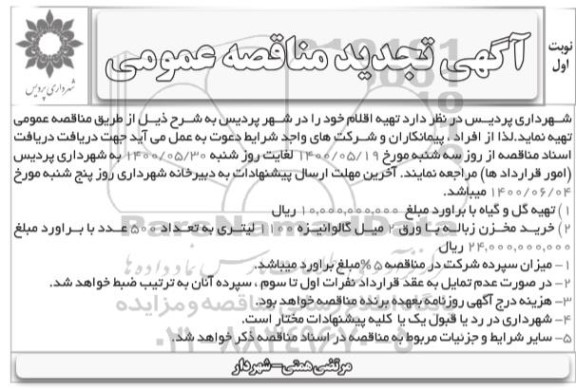 نوبت اول
آگهی تجدید مناقصه عمومی
شهرداری پردیس
شهرداری پردیس در نظر دارد تهیه اقلام خود را در شهر پردیس به شرح ذیل از طریق مناقصه عمومی
تهیه نماید.لذا از افراد ، پیمانکاران و شرکت های واجد شرایط دعوت به عمل می آید جهت دریافت دریافت
اسناد مناقصه از روز سه شنبه مورخ ۱۴۰۰/۰۵/۱۹ لغایت روز شنبه ۱۴۰۰/۰۵/۳۰ به شهرداری پردیس
(امور قرارداد ها) مراجعه نمایند. آخرین مهلت ارسال پیشنهادات به دبیرخانه شهرداری روز پنج شنبه مورخ
۱۴۰۰/۰۶/۰۴ میباشد.
۱) تهیه گل و گیاه با براورد مبلغ ۱۰,۰۰۰,۰۰۰,۰۰۰ ریال
۲) خرید مخزن زباله با ورق ۲ میل گالوانیزه ۱۱۰۰ لیتری به تعداد ۵۰۰ عدد با براورد مبلغ
۲۴,۰۰۰,۰۰۰,۰۰۰ ریال
۱- میزان سپرده شرکت در مناقصه ۵%مبلغ براورد میباشد.
۲- در صورت عدم تمایل به عقد قرارداد نفرات اول تا سوم ، سپرده آنان به ترتیب ضبط خواهد شد.
۳- هزینه درج آگهی روزنامه بعهده برنده مناقصه خواهد بود.
۴- شهرداری در رد یا قبول یک یا کلیه پیشنهادات مختار است.
۵- سایر شرایط و جزئیات مربوط به مناقصه در اسناد مناقصه ذکر خواهد شد.
مرتضی همتی-شهردار
ParsNamadData
۰۲۱-۸۸۳۴۹۶۷۰-۵